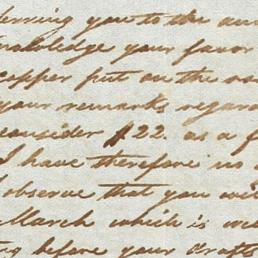 ferring you to the an
knowledge your favor
copper put on the
your remarks regar
consider $22 as a f
I have therefore no
I observe that you wi
March which is
ing before your drafts